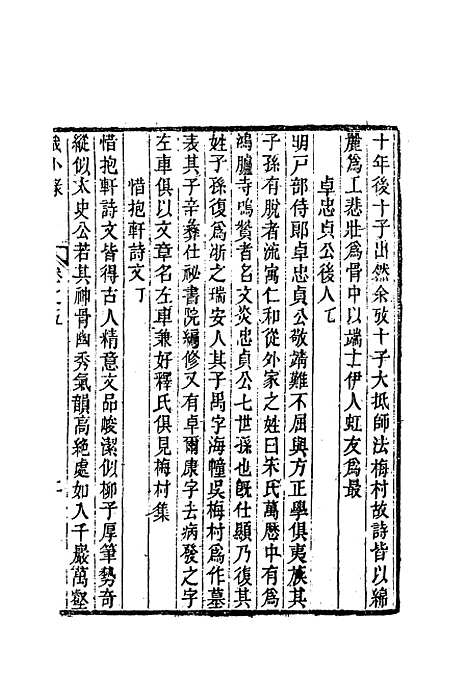 十年後十子出然余攷十子大抵師法梅村故詩皆以綿
麗爲工悲壯爲骨中以端士伊人虹友爲最
卓忠貞公後人
明戸部侍郎卓忠貞公敬靖難不屈與方正學俱夷族其
子孫有脫者流寓仁和從外家之姓曰宋氏萬曆中有爲
鴻臚寺鳴贊者名文炎忠貞公七世孫也既仕顯乃復其
姓子孫復爲浙之瑞安人其子禺字海幢吳梅村爲作墓
表其子辛彝仕祕書院編修又有卓爾康字去病發之字
左車俱以文章名左車兼好釋氏俱見梅村集
惜抱軒詩文丁
惜抱軒詩文皆得古人精意文品峻潔似柳子厚筆勢奇
縱似太史公若其神骨幽秀氣韻高絶處如入千巖萬壑
小錄